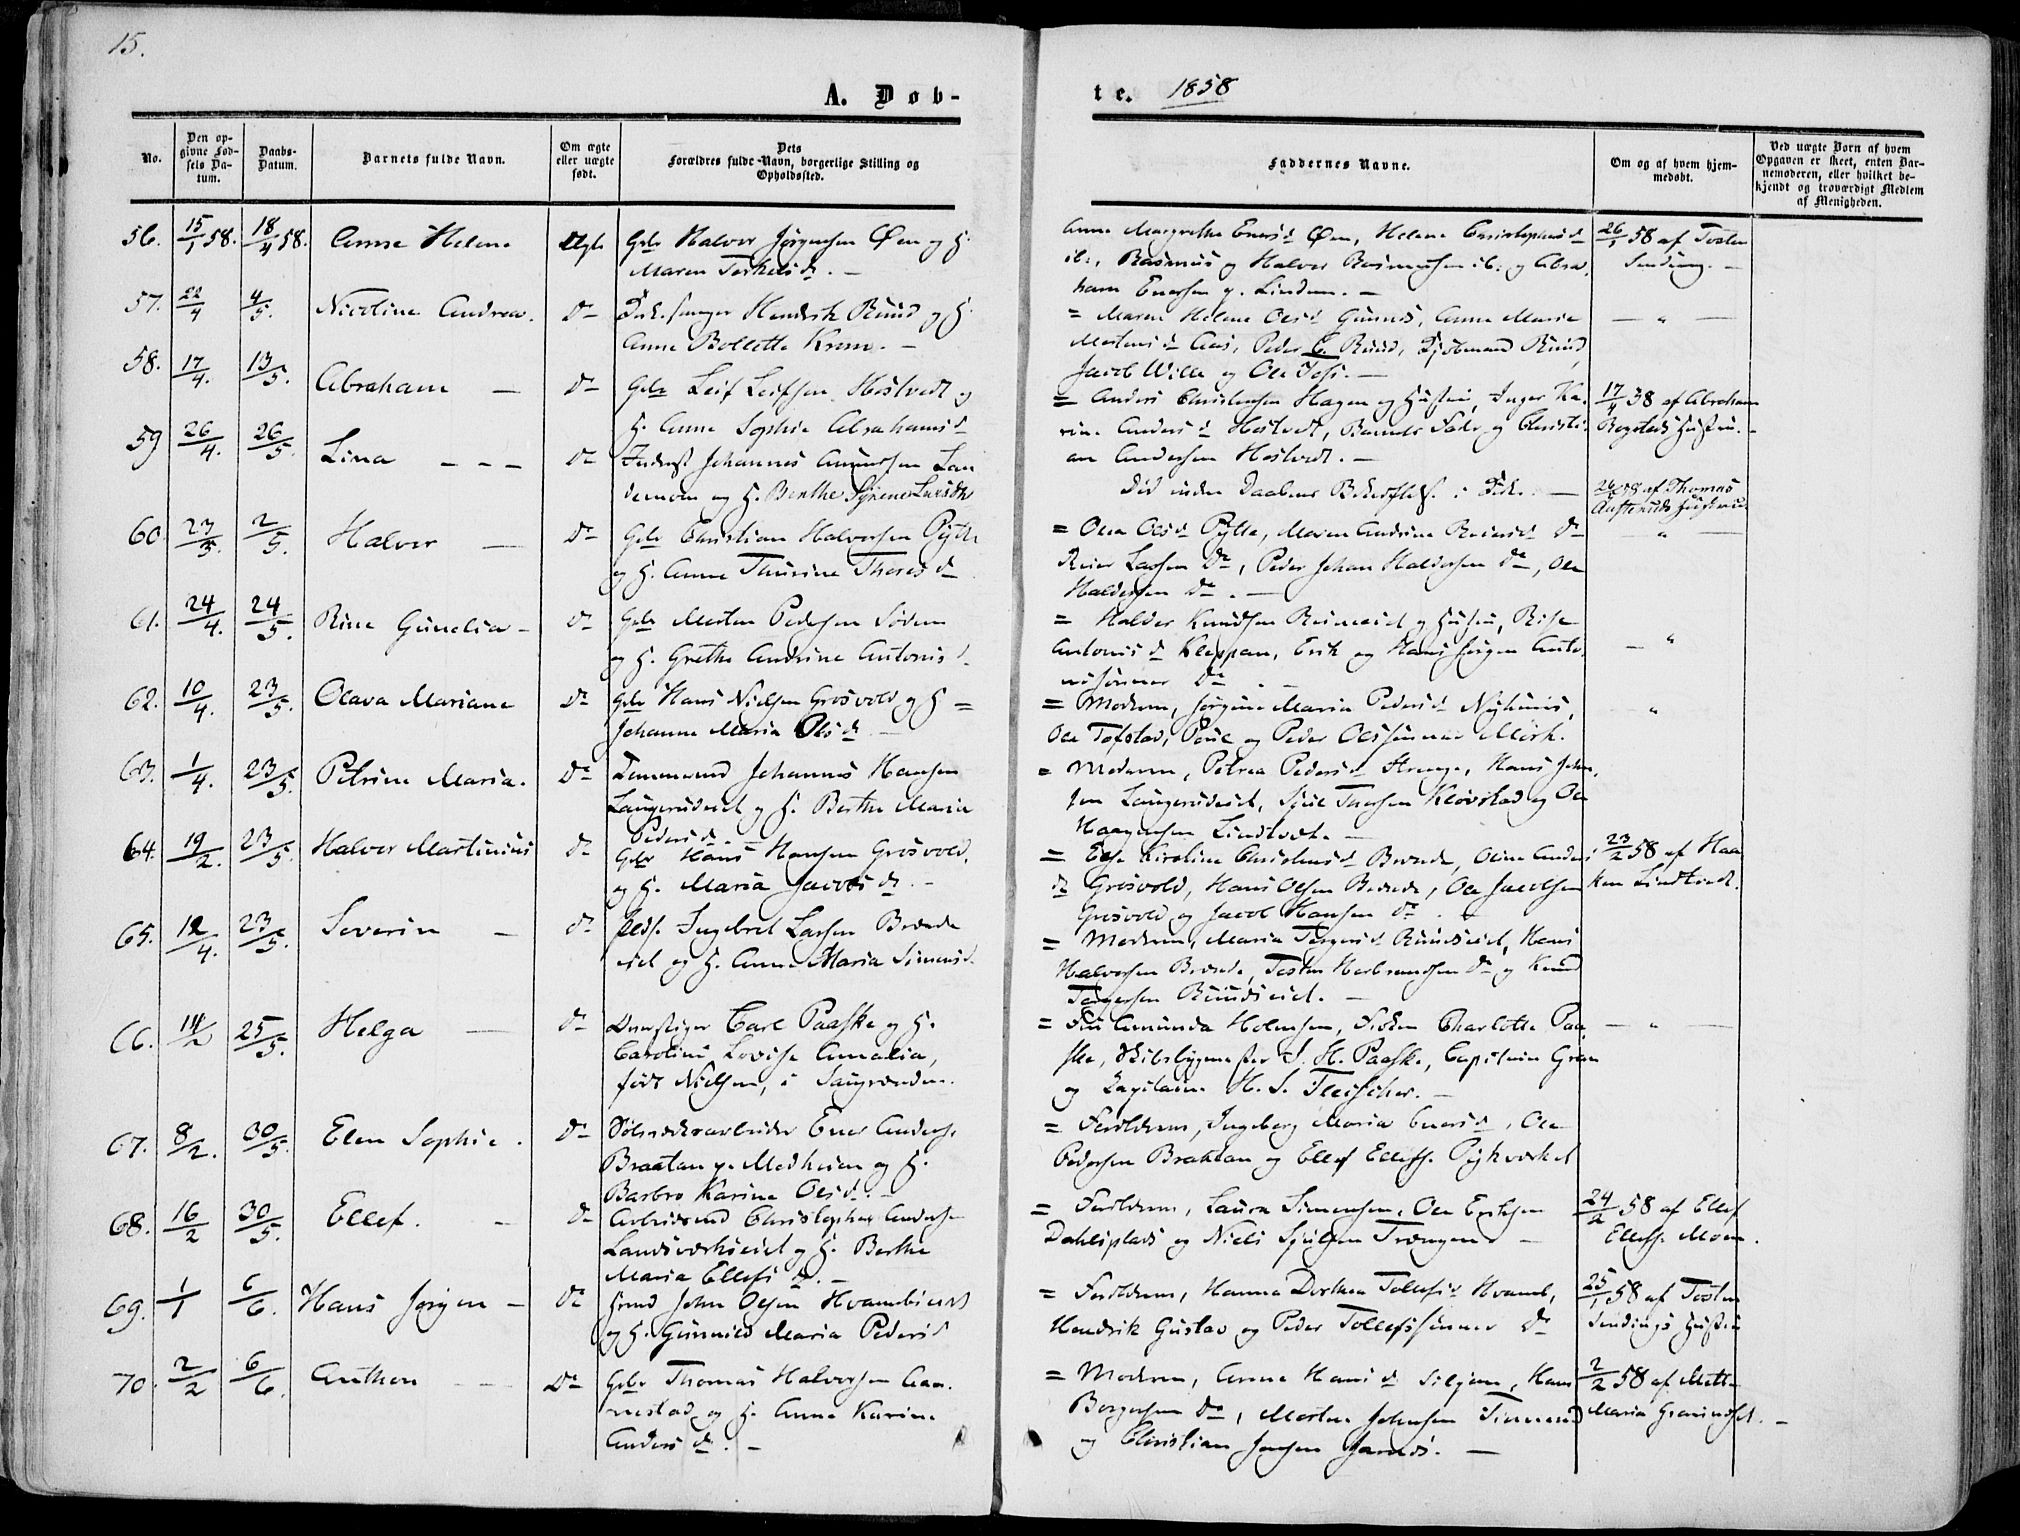 15.
A. Døb-
te. 1858
No.
Den op-
givne Fød-
sels Da-
tum.
Daabs-
Datum.
Barnets fulde Navn.
Om ægte
eller uægte
født.
Dets
Forældres fulde Navn, borgerlige Stilling og
Opholdssted.
Faddernes Navne.
Om og af hvem hjem-
medøbt.
Ved uægte Børn af hvem
Opgaven er skeet, enten Bar-
nemoderen, eller hvilket be-
kjendt og troværdigt Medlem
af Menigheden.
56. 15/1 58. 18/4 58. Anne Helene Ægte Gdbr Halvor Jørgensen Øen og H.
Maren Torkelsd. –
Anne Margrethe Enersd Øen, Helene Christophersd
ib., Rasmus og Halvor Rasmussen ib. og Abra
ham Enersen p. Lindum. –
26/1 58 af Tosten
57. 22/4 4/5. Nicoline Andrea. Do Kirkesanger Hendrik Ruud og H.
Anne Bollette Krem. –
= Maren Helene Olsd Gunnes, Anne Maria
Mortensd Aas, Peder C. Ruud, Kjøbmand Ruud
Jacob Wille og Ole –
58. 17/4. 13/5. Abraham – Do Gdbr Leif Leifsen Hostvedt og
H. Anne Sophie Abrahamsd
= Anders Christensen Hagen og Hustru, Inger Ka-
rine Andersd Hostvedt, og Christi-
an Andersen Hostvedt. –
17/4 58 af Abraham
Bogstads Hustru. –
59 26/4. 26/5. Lina – – – Do Johannes Amundsen Lan
demoen og H. Berthe Larsdtr
Død inden Daabens Bekræftelse i Kirken. –
26/4 58 af Thomas
Hustru
60. 23/3. 2/5. Halvor – Do Gdbr Christian Halvorsen Pytte
og H. Anne Thurine Thoresd
= Olea Olsd Pytte, Maren Andrine Reiersd Do
Reier Larsen Do, Peder Johan Haldorsen Do, Ole
Haldorsen Do. –
61. 24/4. 24/5. Rine Gunelia – Do Gdbr Morten Pedersen
og H. Grethe Andrine Antonisd.
= Halvor Knudsen og Hustru,
Antonisd Kleppan, Erik og Hans Jørgen Anto
nisønner Do. –
62. 10/4. 23/5. Olava Mariane Do Gdbr Hans Nielsen Grosvold og H =
Johanne Maria Olsd. –
= Moderen, Jørgine Maria Pedersd Nyhuus,
Ole Tofstad, Poul og Peder Olssønner Mørk.
63. 1/4. 23/5. Petrine Maria. Do Tømmermand Johannes Hansen
Laugerudeiet og H. Berthe Maria
Pedersd. –
= Moderen, Petrea Pedersd, Hans Johan-
sen Laugerudeiet, Sjul Thorsen Kløvstad og Ole
Haagensen Lindtvedt. –
64. 19/2. 23/5. Halvor Martinius Do Gdbr Hans Hansen Grosvold,
og H. Maria Jacobsd. –
= Else Karoline Christensd Brænde, Oline Anders
d Grosvold, Hans Olsen Brænde, Ole Jacobsen
Grosvold og Jacob Hansen Do. –
23/2 58 af Haa
ken Lindtvedt.
65. 12/4. 23/5. Severin – Do Ingebret Larsen Brænde
eiet og H. Anne Maria Simensd.
= Moderen, Maria Torgersd Ruudseiet, Hans
Halvorsen Brænde, Tosten Herbrandsen Do og Knud
Torgersen Ruudseiet. –
66. 14/2 25/5. Helga – Do Carl Paaske og H.
Caroline Lovise Amalia,
født Nielsen, i Laugrænden.
= Fru Amunda Holmsen, Frøken Charlotte Paa
ske, Skibsbygmester S. H. Paaske, Capitain Gran
og Capitain H. S. Fleischer. –
67. 8/2. 30/5. Elen Sophie. Do Sølvværksarbeider Ener Anders.
Braatan p. Medheien og H.
Barbro Karine Olsd. –
= Forældrene, Ingeborg Maria Enersd, Ole
Pedersen Braatan og Ellef Ellefs.
68. 16/2 30/5. Ellef. – Do Arbeidsmd Christopher Andersen
Landsværkseiet og H. Berthe
Maria Ellefsd. –
= Forældrene, Laura Simensen, Ole Eriksen
Dahlsplads og Niels Sjulsen Trængen –
24/2 58 af Ellef
Ellefs. Moen.
69. 1/1 6/6. Hans Jørgen – Do Hmd John Olsen Hvambseiet
og H. Gunnild Maria Pedersd
= Forældrene, Hanna Dorthea Tollefsd Hvamb,
Hendrik Gustav og Peder Tollefssønner Do
25/1 58 af Tosten
Sendings Hustru
70. 2/2 6/6. Anthon – – Do Gdbr Thomas Halvorsen Aan-
nestad og H. Anne Karine
Andersd. –
= Moderen, Anne Hansd Siljan, Hans
Borgersen Do, Morten Johnsen
og Christian Jensen. –
2/2 58 af Mette
Maria. –